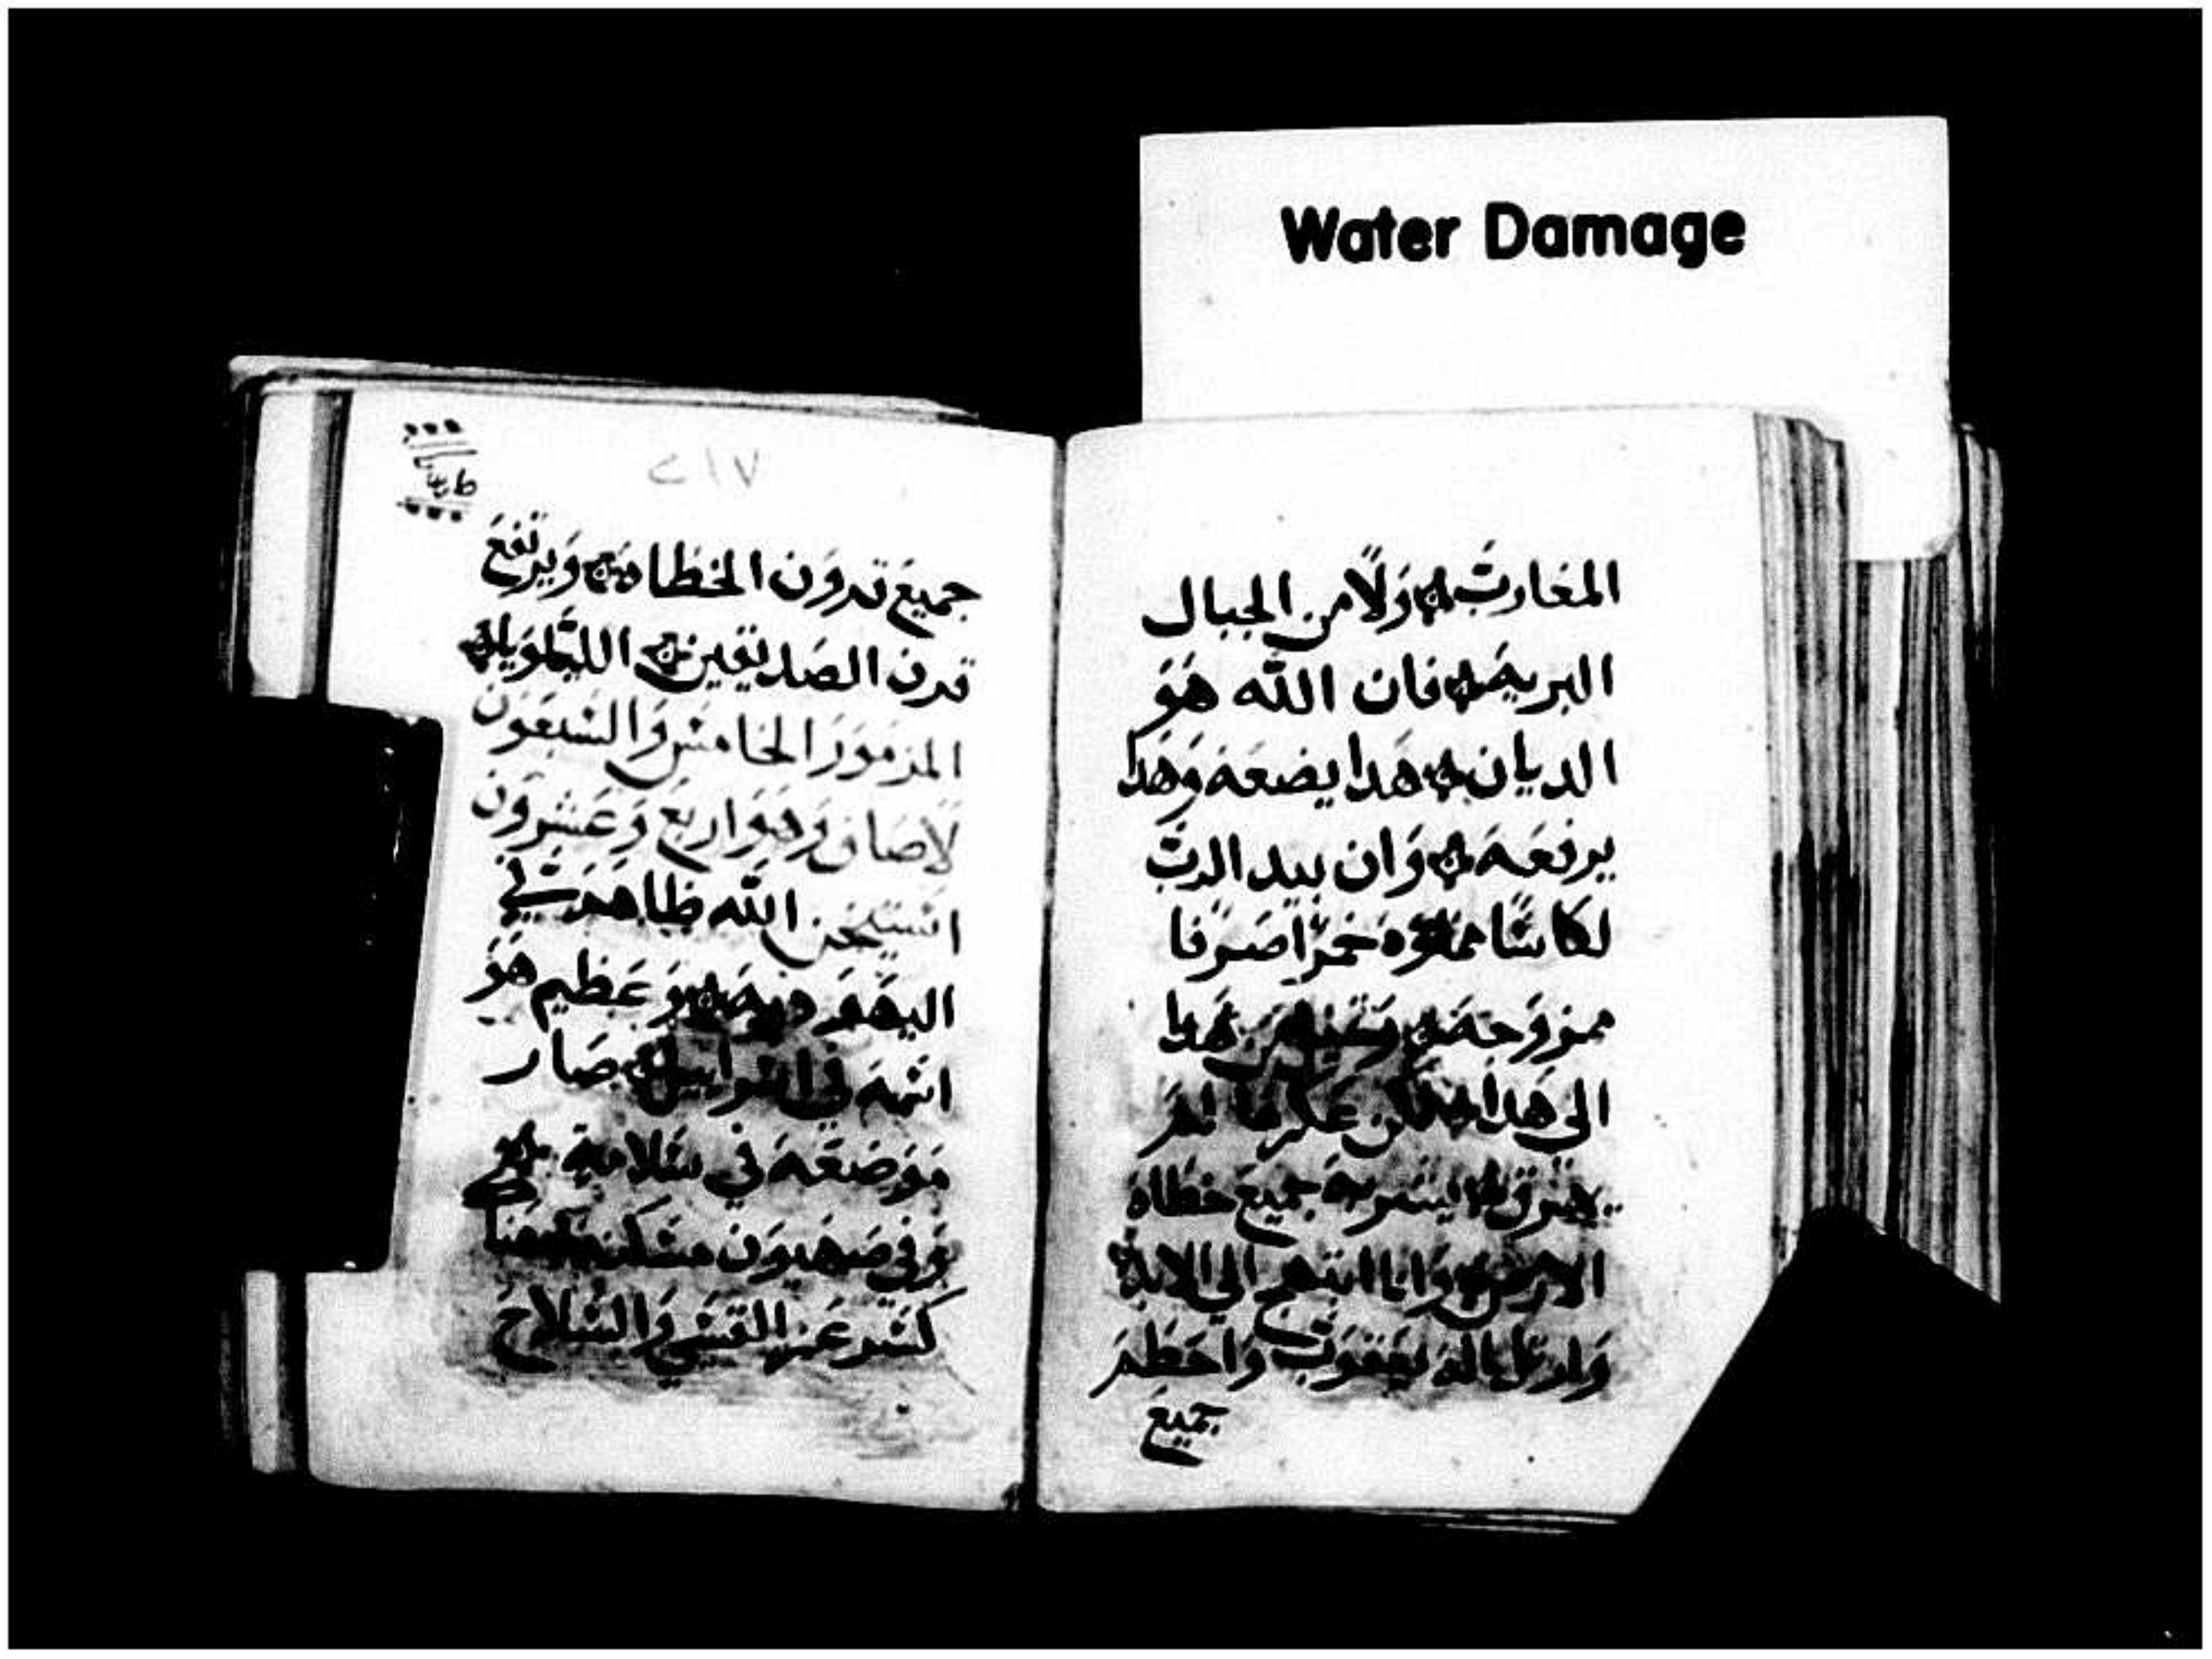 Water Damage
المغارب ولا من الجبال
البرية فان الله هو
الديان هدا يضعه وهدا
يرفعه وان بيد الرب
لكاسا مملوه خمرا صرفا
ممزوجه هدا
الى هدا لكن عكرها لم
يهترق ليشربه جميع خطاه
الارض وانا ابتهج الى الابد
وارتل لاله يعقوب واحطم
جميع
٢١٧
جميع قرون الخطاه ويرتفع
قرن الصديقين الليلويا
المزمور الخامس والسبعون
لاصاف وهو اربع وعشرون
استيخن الله ظاهر في
اليهوديه وعظيم هو
اسمه في اسراييل صار
موضعه في سلامة
وفي صهيون مسكنه
كسر عز القسي والسلاح